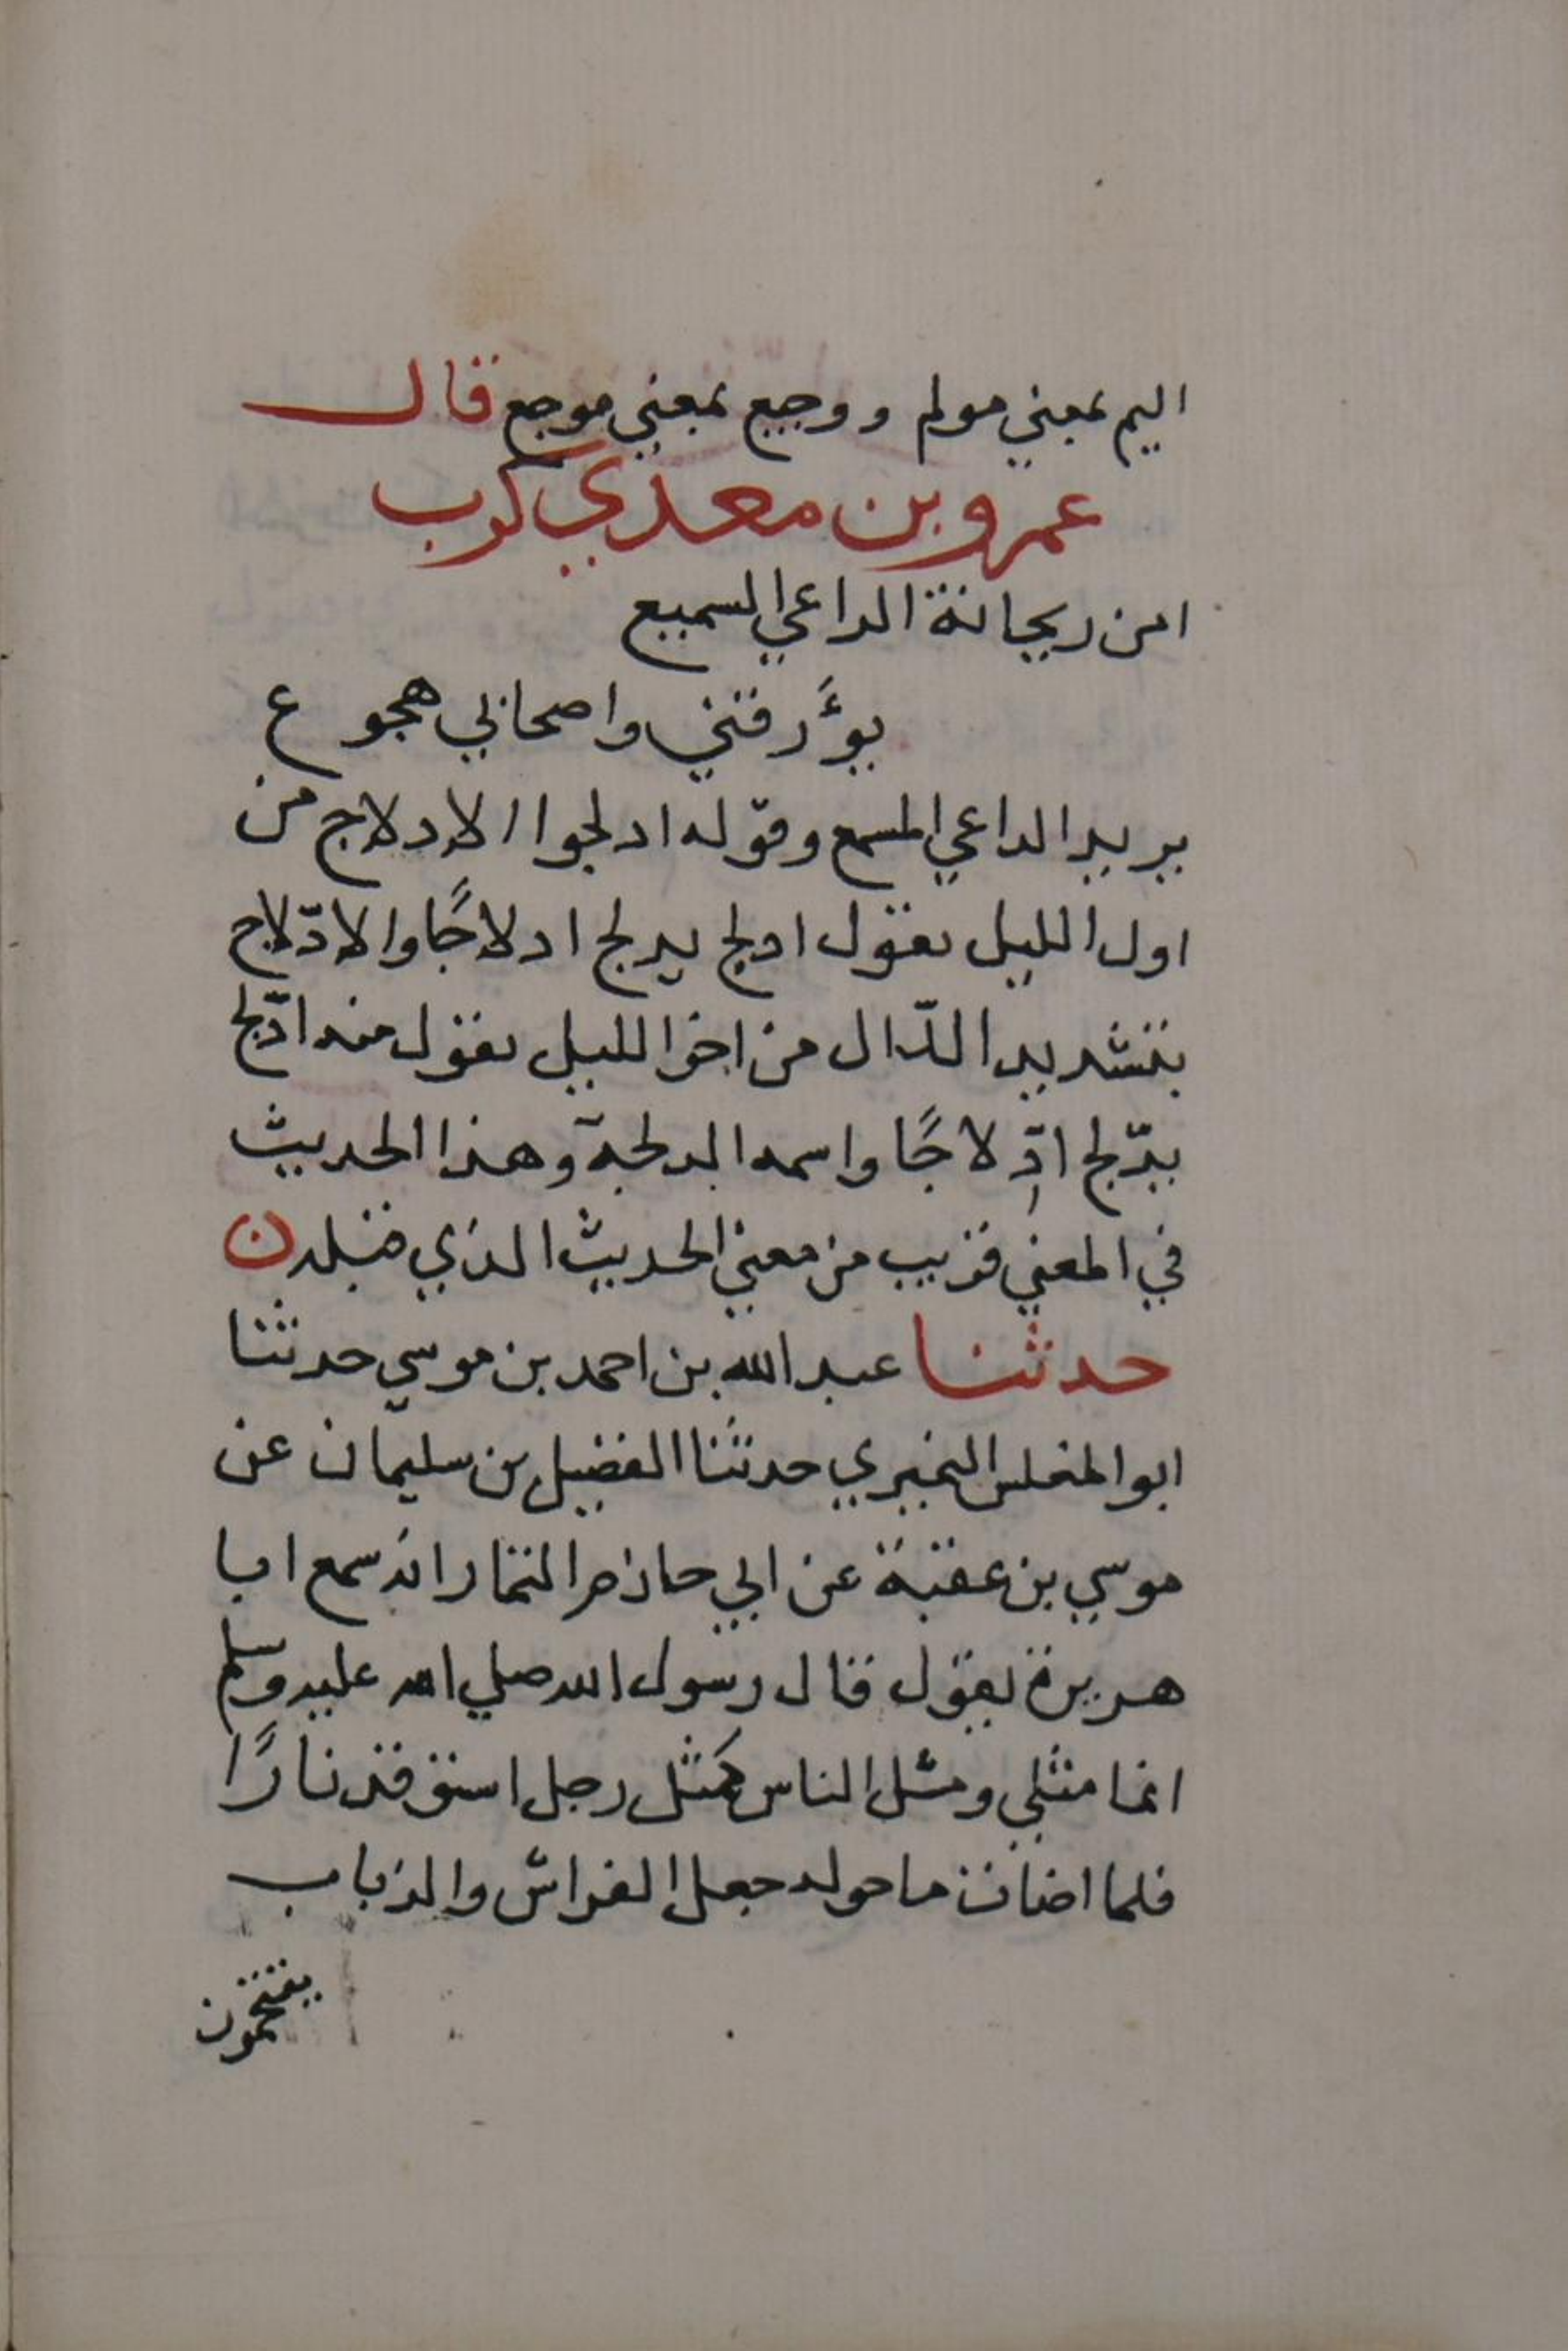 اليم بمعني مولم ووجيع بمعني موجع قال
عمرو بن معدي كرب
امن ريحانة الداعي السميع
يؤَرقني واصحابي هجوع
يريد الداعي المسمع وقوّله ادلجوا الادلاج من
اول الليل يقول ادلج يدلج ادلاجًا والادّلاج
بتشديد الدّال من اخر الليل يقول منه ادّلج
يدّلج ادِّلاجًا واسمه الدلجة وهذا الحديث
في المعني قريب من معني الحديث الذي قبله ن
حدثنا عبد الله بن احمد بن موسي حدثنا
ابو المغلس النميري حدثنا الفضيل بن سليمان عن
موسي بن عقبة عن ابي حاذم التمار انه سمع ابا
هريرة يقول قال رسول الله صلي الله عليه وسلم
انما مثلي ومثل الناس كمثل رجل استوقد نارًا
فلما اضات ما حوله جعل الفراش والذباب
يقتحمون